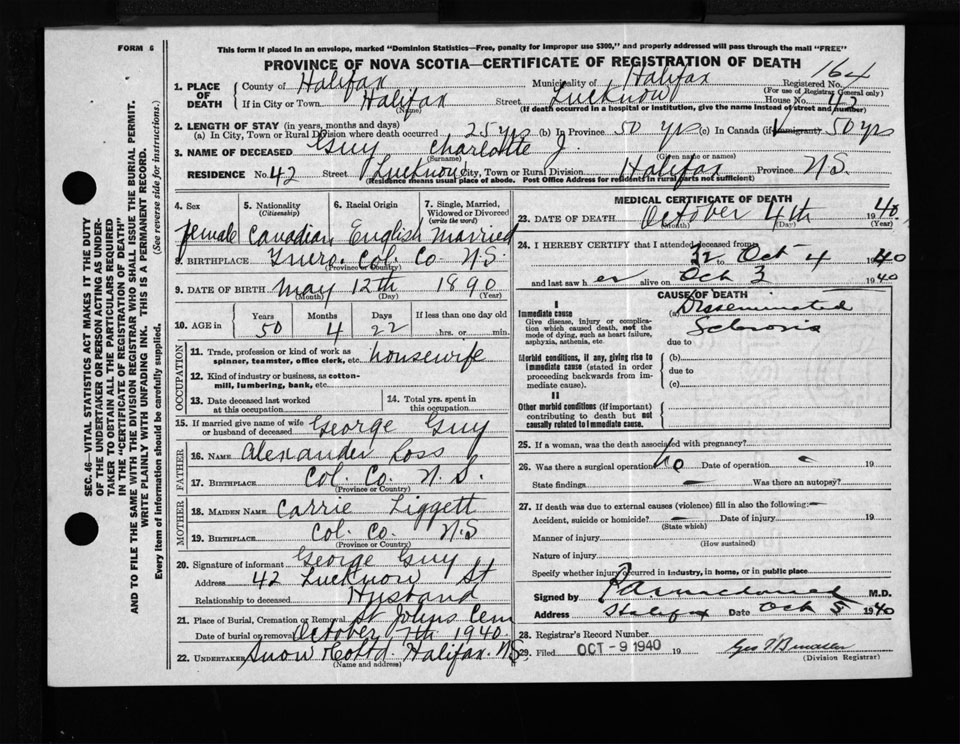 FORM 6
This form if placed in an envelope, marked "Dominion Statistics—Free, penalty for improper use $300," and properly addressed will pass through the mail "FREE"
PROVINCE OF NOVA SCOTIA—CERTIFICATE OF REGISTRATION OF DEATH
164
1. PLACE OF DEATH County of Halifax Municipality of Halifax Registered No.
(For use of Registrar General only)
If in City or Town Halifax Street Lucknow House No. 42
(Name) (If death occurred in a hospital or institution, give the name instead of street and number)
2. LENGTH OF STAY (in years, months and days)
(a) In City, Town or Rural Division where death occurred 25 yrs (b) In Province 50 yrs (c) In Canada (if immigrant) 50 yrs
3. NAME OF DECEASED Guy Charlotte J.
(Surname) (Given name or names)
RESIDENCE No. 42 Street Lucknow City, Town or Rural Division Halifax Province N.S.
(Residence means usual place of abode. Post Office Address for residents in rural parts not sufficient)
4. Sex 5. Nationality (Citizenship) 6. Racial Origin 7. Single, Married, Widowed or Divorced (write the word)
female Canadian English Married
8. BIRTHPLACE Col. Co. N.S.
(Province or Country)
9. DATE OF BIRTH May 12th 1890
(Month) (Day) (Year)
10. AGE in Years Months Days If less than one day old
50 4 22 hrs. or min.
OCCUPATION
11. Trade, profession or kind of work as spinner, teamster, office clerk, etc. housewife
12. Kind of industry or business, as cotton-mill, lumbering, bank, etc.
13. Date deceased last worked at this occupation 14. Total yrs. spent in this occupation
15. If married give name of wife or husband of deceased George Guy
FATHER
16. NAME Alexander Ross
17. BIRTHPLACE Col. Co. N.S.
(Province or Country)
MOTHER
18. MAIDEN NAME Carrie Liggett
19. BIRTHPLACE Col. Co. N.S
(Province or Country)
20. Signature of informant George Guy
Address 42 Lucknow St
Relationship to deceased Husband
21. Place of Burial, Cremation or Removal St Johns Cem
Date of burial or removal October 7th 1940.
22. UNDERTAKER Snow & Co Ltd. Halifax. N.S.
(Name and address)
MEDICAL CERTIFICATE OF DEATH
23. DATE OF DEATH October 4th 1940
(Month) (Day) (Year)
24. I HEREBY CERTIFY that I attended deceased from
32 to Oct 4 1940
and last saw her alive on Oct 3 1940
CAUSE OF DEATH
I
Immediate cause (a) Disseminated
Give disease, injury or complication which caused death, not the mode of dying, such as heart failure, asphyxia, asthenia, etc.
Sclerosis
due to
Morbid conditions, if any, giving rise to immediate cause (stated in order proceeding backwards from immediate cause). (b)
due to
(c)
II
Other morbid conditions (if important) contributing to death but not causally related to immediate cause.
25. If a woman, was the death associated with pregnancy?
26. Was there a surgical operation no Date of operation – 19
State findings – Was there an autopsy?
27. If death was due to external causes (violence) fill in also the following:–
Accident, suicide or homicide? – Date of injury 19
(State which)
Manner of injury
(How sustained)
Nature of injury
Specify whether injury occurred in industry, in home, or in public place
Signed by M.D.
Address Halifax Date Oct 5 1940
28. Registrar's Record Number
29. Filed OCT -9 1940 19
(Division Registrar)
SEC. 46—VITAL STATISTICS ACT MAKES IT THE DUTY OF THE UNDERTAKER OR PERSON ACTING AS UNDERTAKER TO OBTAIN ALL THE PARTICULARS REQUIRED IN THE "CERTIFICATE OF REGISTRATION OF DEATH" AND TO FILE THE SAME WITH THE DIVISION REGISTRAR WHO SHALL ISSUE THE BURIAL PERMIT.
WRITE PLAINLY WITH UNFADING INK. THIS IS A PERMANENT RECORD.
Every item of information should be carefully supplied. (See reverse side for instructions.)